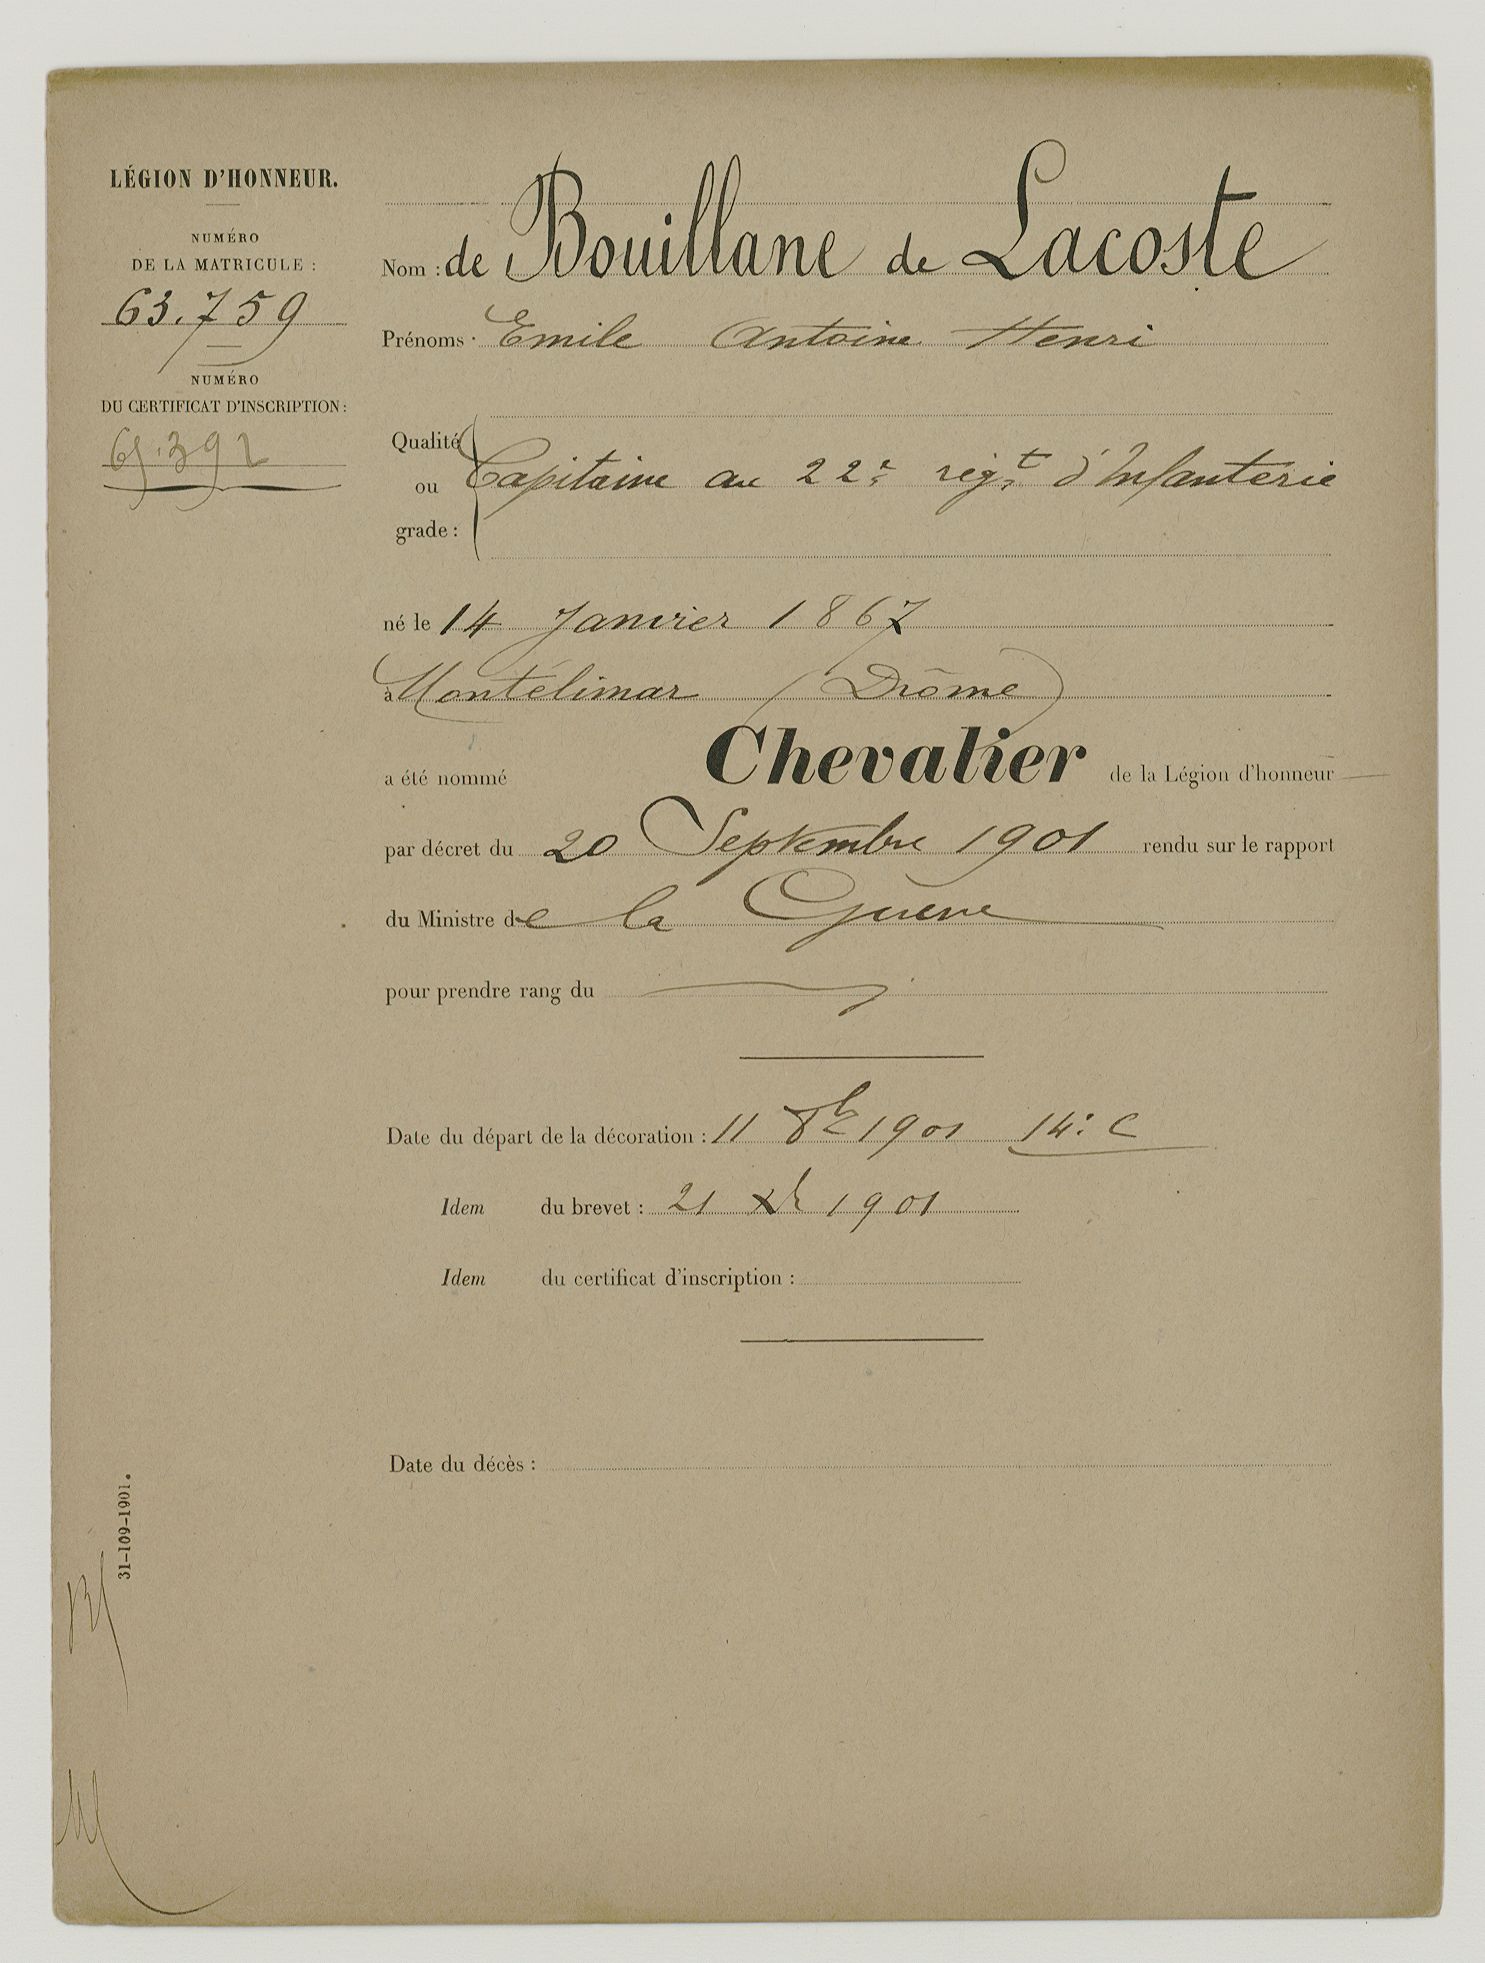 LÉGION D'HONNEUR.
NUMÉRO
DE LA MATRICULE :
63.759
NUMÉRO
DU CERTIFICAT D'INSCRIPTION :
65.392
Nom : de Bouillane de Lacoste
Prénoms : Emile Antoine Henri
Qualité
ou Capitaine au 22e régt d'Infanterie
grade :
né le 14 Janvier 1867
à Montélimar (Drôme)
a été nommé Chevalier de la Légion d'honneur
par décret du 20 Septembre 1901 rendu sur le rapport
du Ministre de la Guerre
pour prendre rang du
Date du départ de la décoration : 11 8bre 1901 14e C
Idem du brevet : 21 Xbr 1901
Idem du certificat d'inscription :
Date du décès :
31-109-1901.